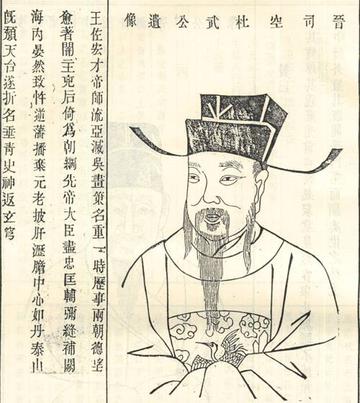 晉司空杜武公遺像
王佐宏才帝師流亞滅吳畫策名重一時歷事兩朝德望
愈著闇主兇后倚為朝綱先帝大臣盡忠匡輔彌縫補闕
海內晏然致忤逆藩擯棄元老披肝瀝膽中心如丹泰山
既頹天台遂折名垂青史神返玄穹